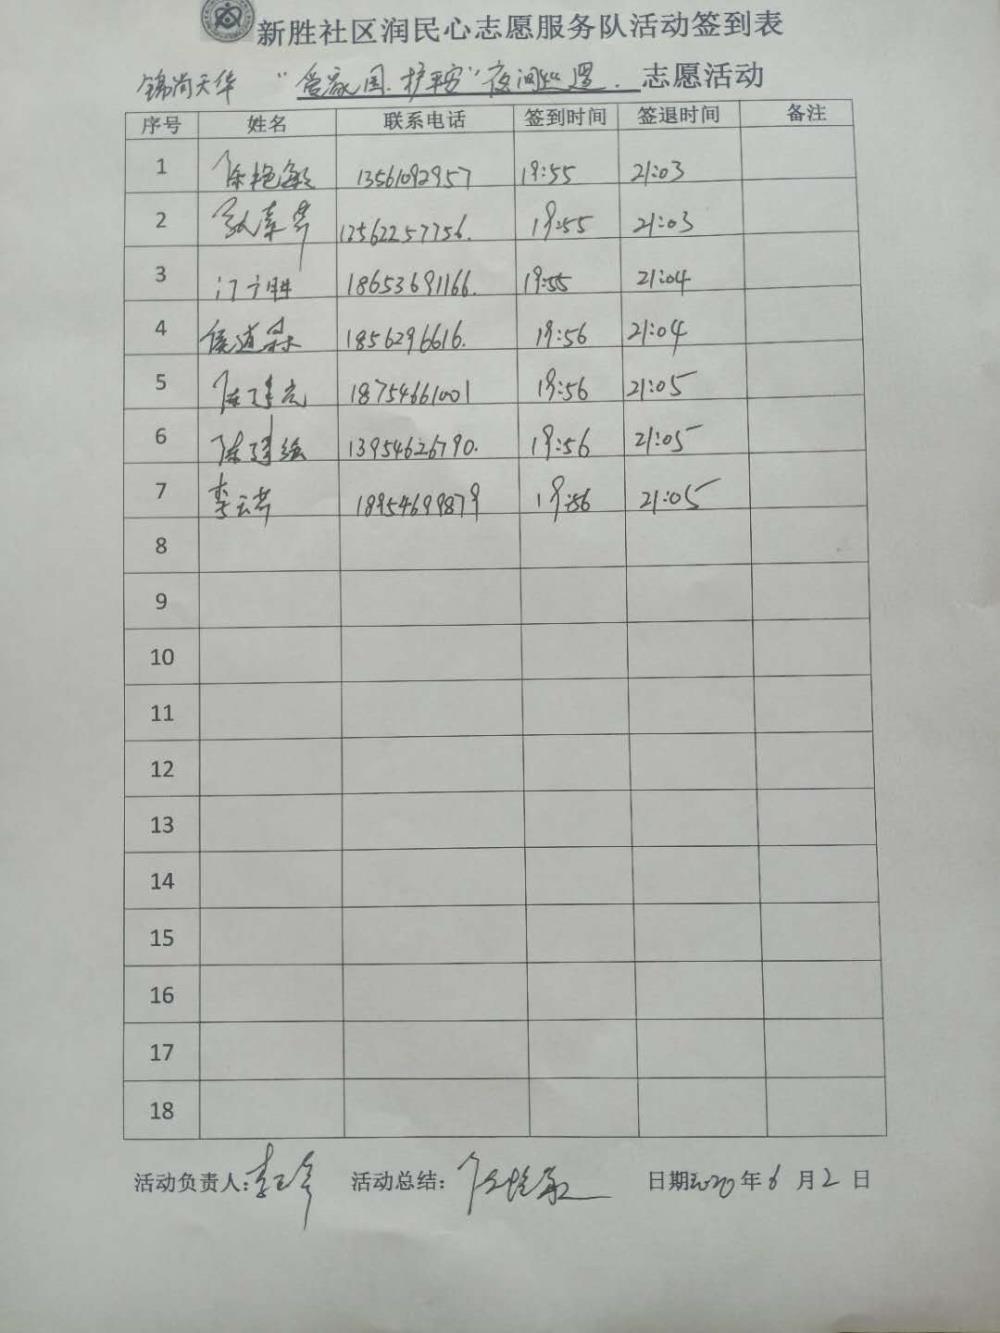 新胜社区润民心志愿服务队活动签到表
锦尚天华 "爱家园.护平安"夜间巡逻. 志愿活动
序号 姓名 联系电话 签到时间 签退时间 备注
1 陈艳敏 13561092957 19:55 21:03
2 13562257756. 19:55 21:03
3 18653691166. 19:55 21:04
4 侯道森 1856296616. 19:56 21:04
5 18754661001 19:56 21:05
6 陈建强 13954626790. 19:56 21:05
7 李云芳 18954699879 19:56 21:05
8
9
10
11
12
13
14
15
16
17
18
活动负责人: 活动总结: 日期2020年6月2日